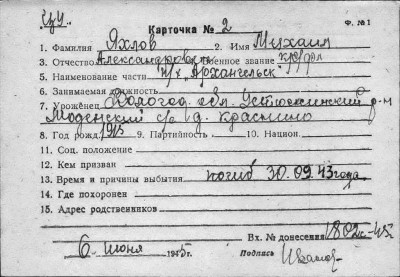 Ф. №1
Карточка № 2
1. Фамилия Яхлов 2. Имя Михаил
3. Отчество Александрович Военное звание кр/фл
5. Наименование части п/х "Архангельск"
6. Занимаемая должность
7. Урожёнец Вологод. обл. Устюженский р-н
Моденский с/с д. Красино
8. Год рожд. 1915 9. Партийность 10. Национ.
11. Соц. положение
12. Кем призван
13. Время и причины выбытия погиб 30.09.43 года.
14. Где похоронен
15. Адрес родственников
Вх. № донесения 1802с-45
6. июня 1945г. Подпись